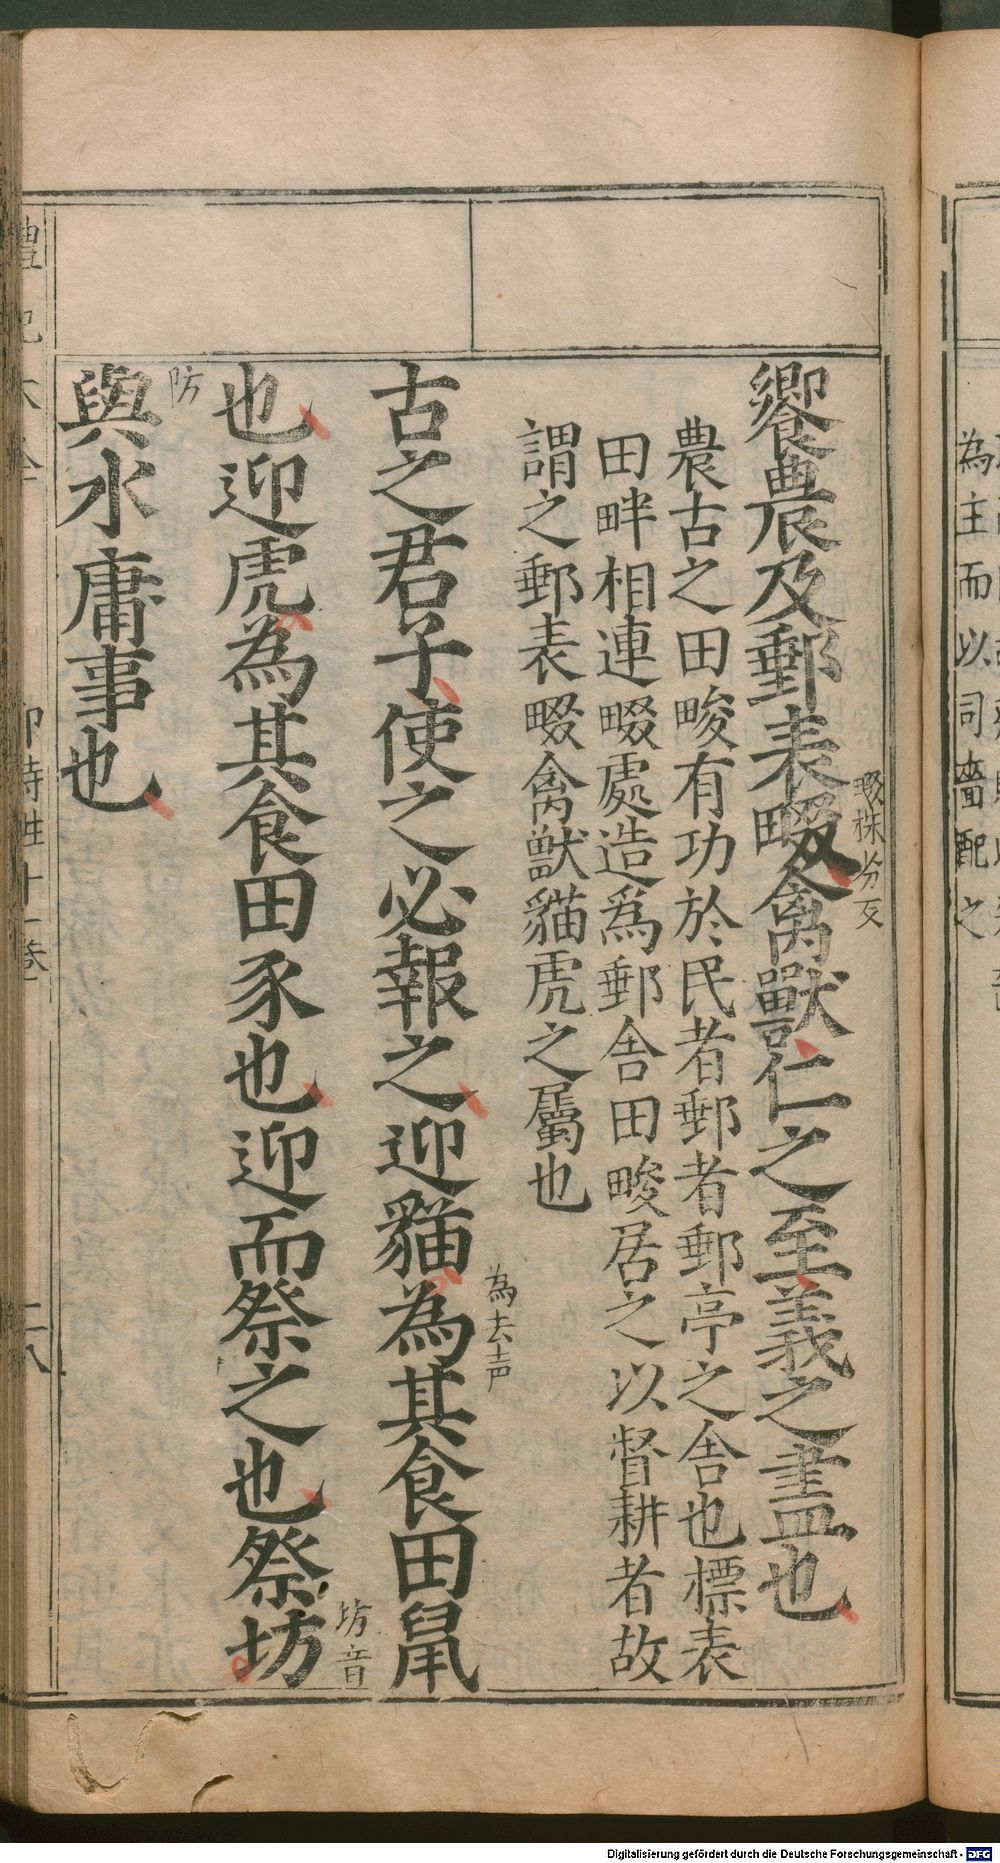 為主而以司嗇配之
饗農及郵表畷禽獸仁之至義之盡也
畷株劣反
農古之田畯有功於民者郵者郵亭之舍也標表
田畔相連畷處造為郵舍田畯居之以督耕者故
謂之郵表畷禽獸貓虎之屬也
為去声
古之君子使之必報之迎貓為其食田鼠
坊音
也迎虎為其食田豕也迎而祭之也祭坊
防
與水庸事也
十一卷
二八
Digitalisierung gefördert durch die Deutsche Forschungsgemeinschaft - DFG